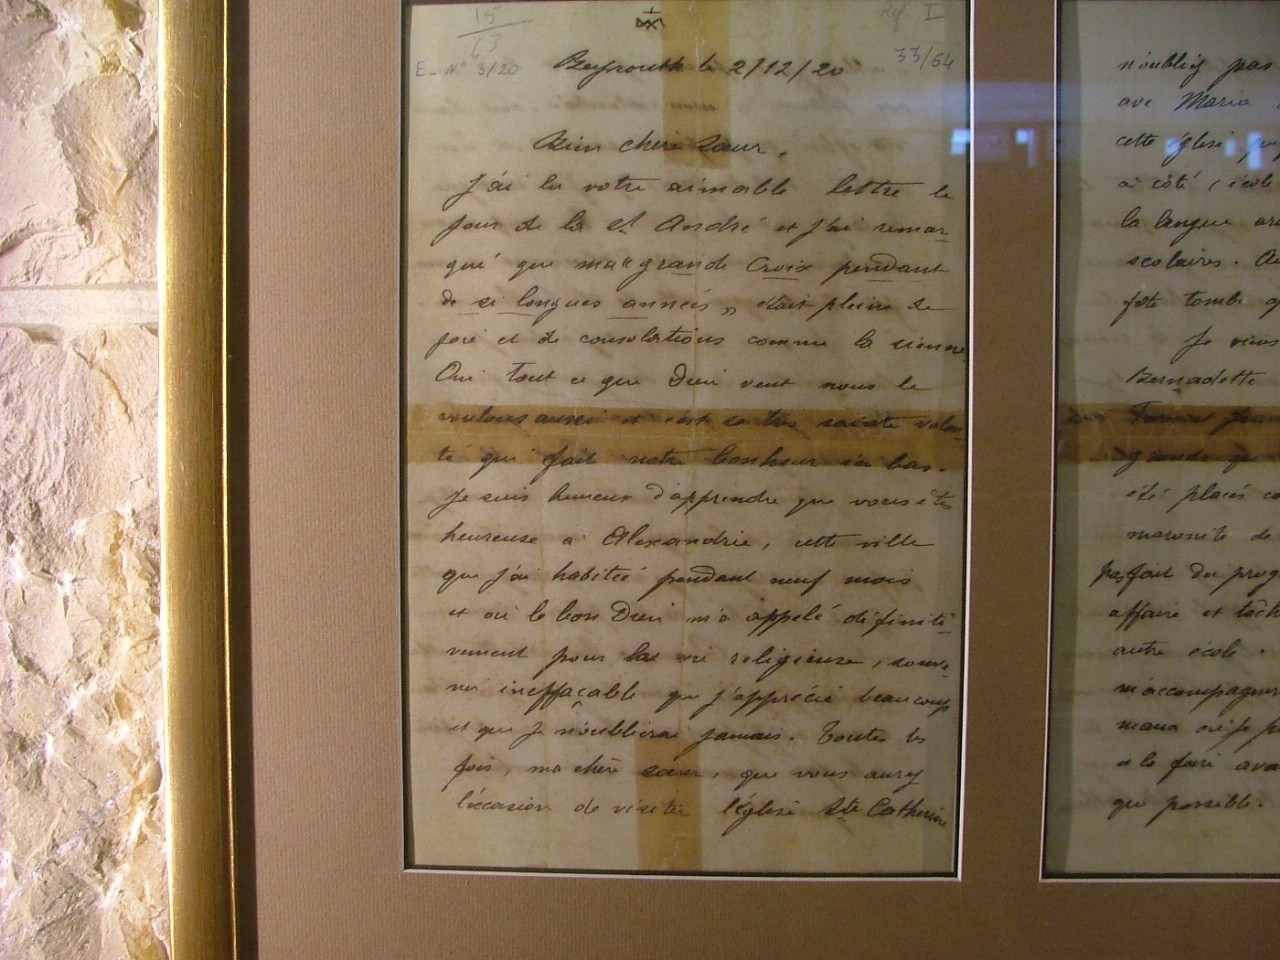 15
63
Réf. I
E_ N° 3/20
33/64
Beyrouth le 2/12/20
Bien chère Sœur,
J'ai lu votre aimable lettre le
jour de la St André et j'ai remar-
qué que ma "grande Croix pendant
de si longues années„ était pleine de
joie et de consolations comme la sienne
Oui tout ce que Dieu veut nous le
voulons aussi et c'est sa très sainte volon-
té qui fait notre bonheur ici bas.
Je suis heureux d'apprendre que vous êtes
heureuse à Alexandrie, cette ville
que j'ai habitée pendant neuf mois
et où le bon Dieu m'a appelé définiti-
vement pour la vie religieuse, souve-
nir ineffaçable que j'apprécie beaucoup
et que je n'oublierai jamais. Toutes les
fois, ma chère sœur, que vous aurez
l'occasion de visiter l'église Ste Catherine
n'oubliez pas
ave Maria
cette église
à côté, école
la langue
scolaires.
fête tombe
Je viens
Bernadette
grande que
été placés
maronite de
parfait du
affaire et
autre école.
m'accompagner
où je
et le faire
que possible.